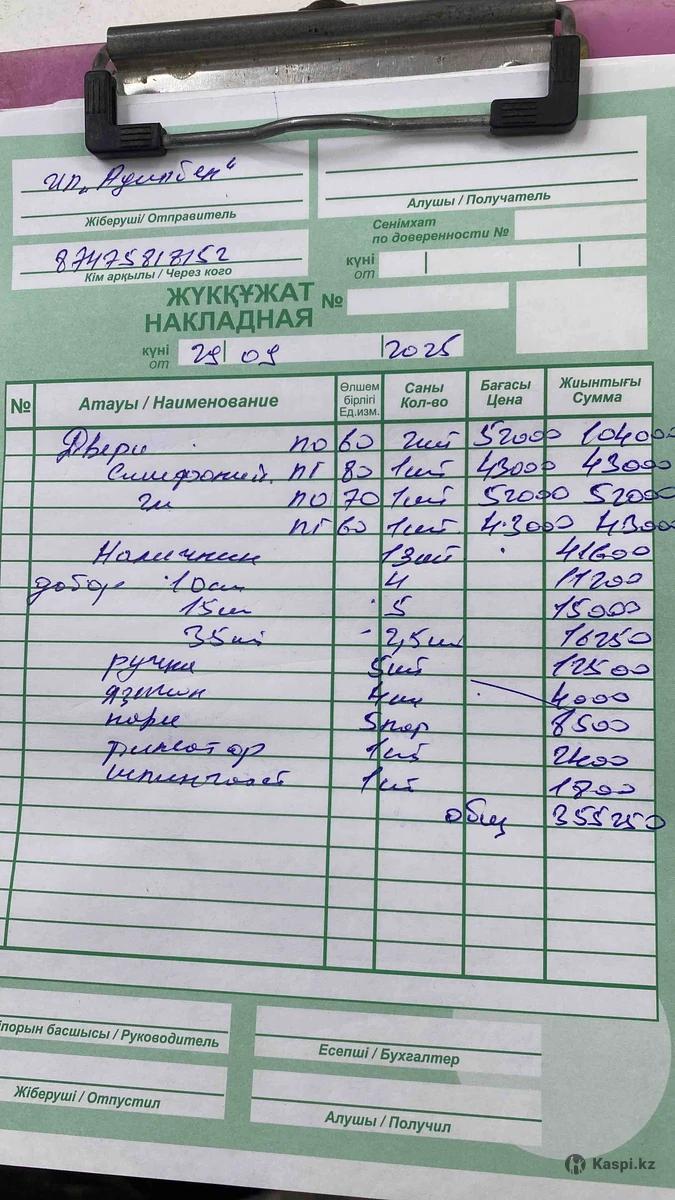 ИП „Адилбек“
Жіберуші/ Отправитель
Алушы / Получатель
87475818152
Кім арқылы / Через кого
Сенімхат
по доверенности №
күні
от
ЖҮКҚҰЖАТ
НАКЛАДНАЯ №
күні
от 29 09 2025
№ Атауы / Наименование Өлшем бірлігі Ед.изм. Саны Кол-во Бағасы Цена Жиынтығы Сумма
Двери ПО 60 2шт 52000 104000
Симфония ПГ 80 1шт 43000 43000
ПО 70 1шт 52000 52000
ПГ 60 1шт 43000 43000
Наличник 13шт 41600
добор 10см 4 11200
15см 5 15000
35см 2,5шт 16250
ручка 5шт 12500
4шт 4000
5пар 8500
фиксатор 1шт 2400
шпингалет 1шт 1800
общ 355250
порын басшысы / Руководитель
Есепші / Бухгалтер
Жіберуші / Отпустил
Алушы / Получил
Kaspi.kz